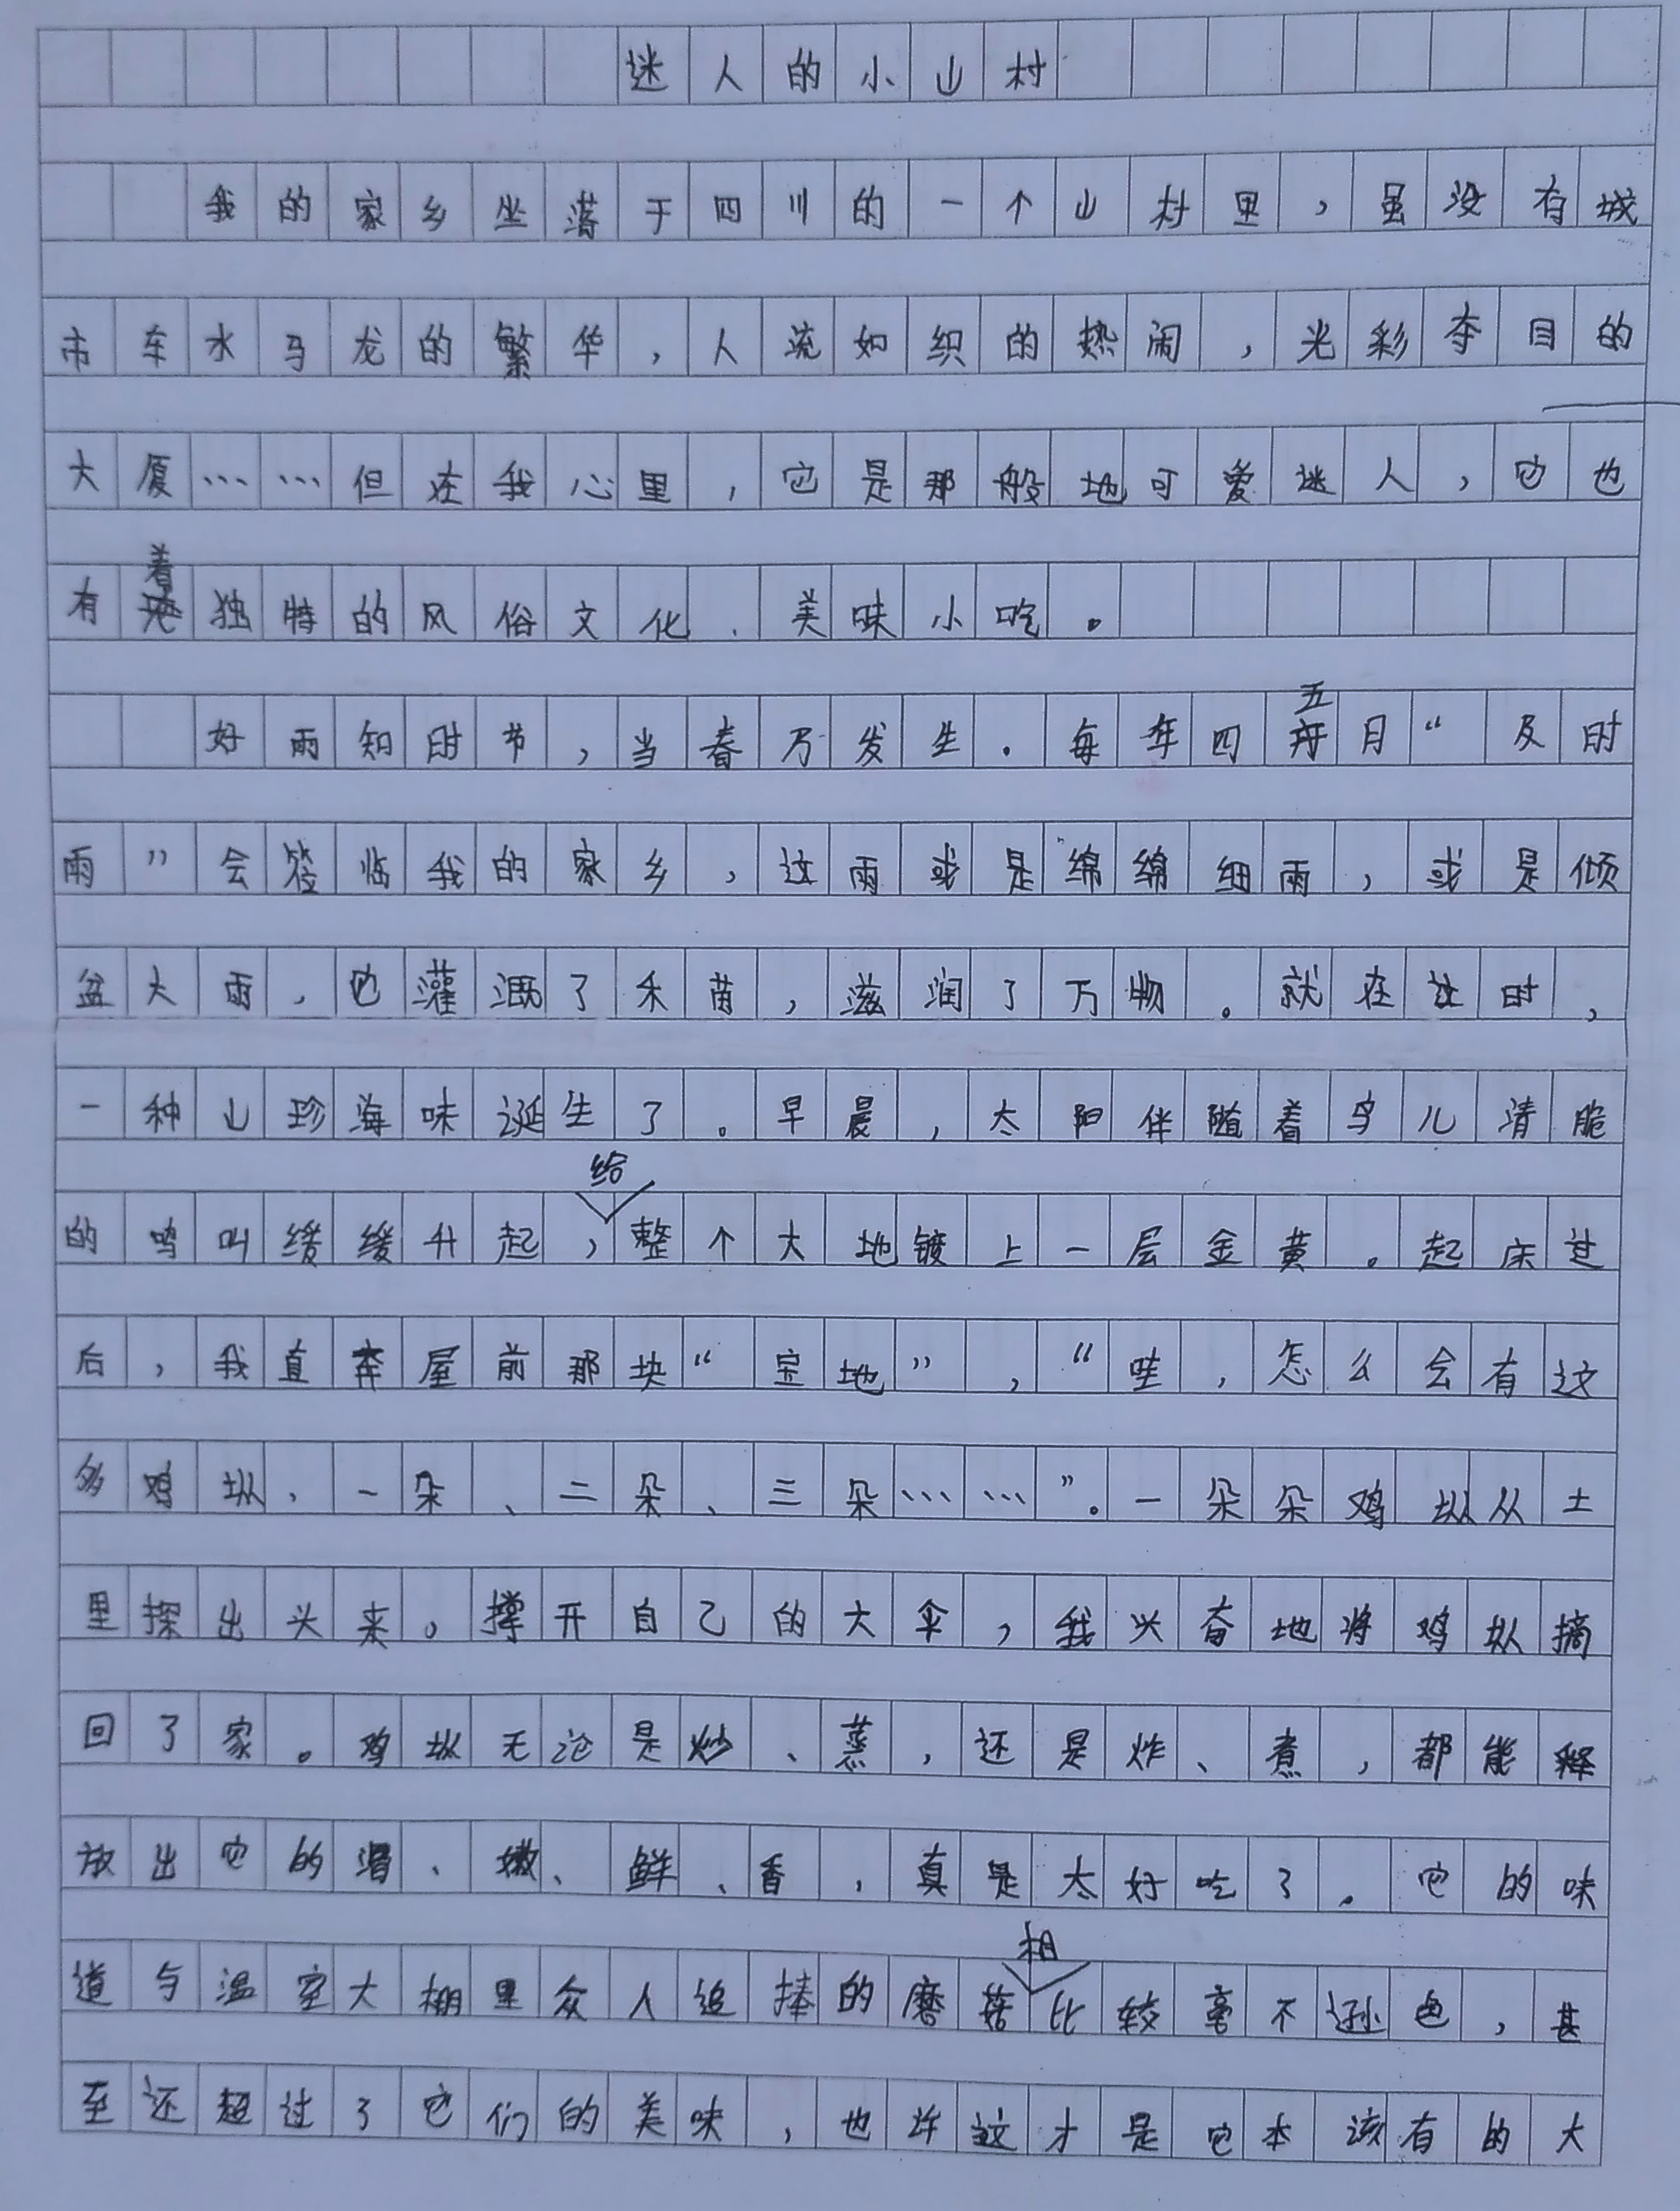 迷人的小山村
我的家乡坐落于四川的一个山村里，虽没有城
市车水马龙的繁华，人流如织的热闹，光彩夺目的
大厦……但在我心里，它是那般地可爱迷人，它也
有着独特的风俗文化、美味小吃。
好雨知时节，当春乃发生。每年四五月“及时
雨”会莅临我的家乡，这雨或是绵绵细雨，或是倾
盆大雨，它灌溉了禾苗，滋润了万物。就在这时，
一种山珍海味诞生了。早晨，太阳伴随着鸟儿清脆
的鸣叫缓缓升起，给整个大地镀上一层金黄。起床过
后，我直奔屋前那块“宝地”，“哇，怎么会有这
多鸡枞，一朵、二朵、三朵……”。一朵朵鸡枞从土
里探出头来。撑开自己的大伞，我兴奋地将鸡枞摘
回了家。鸡枞无论是炒、蒸，还是炸、煮，都能释
放出它的滑、嫩、鲜、香，真是太好吃了。它的味
道与温室大棚里众人追捧的磨菇相比较毫不逊色，甚
至还超过了它们的美味，也许这才是它本该有的大